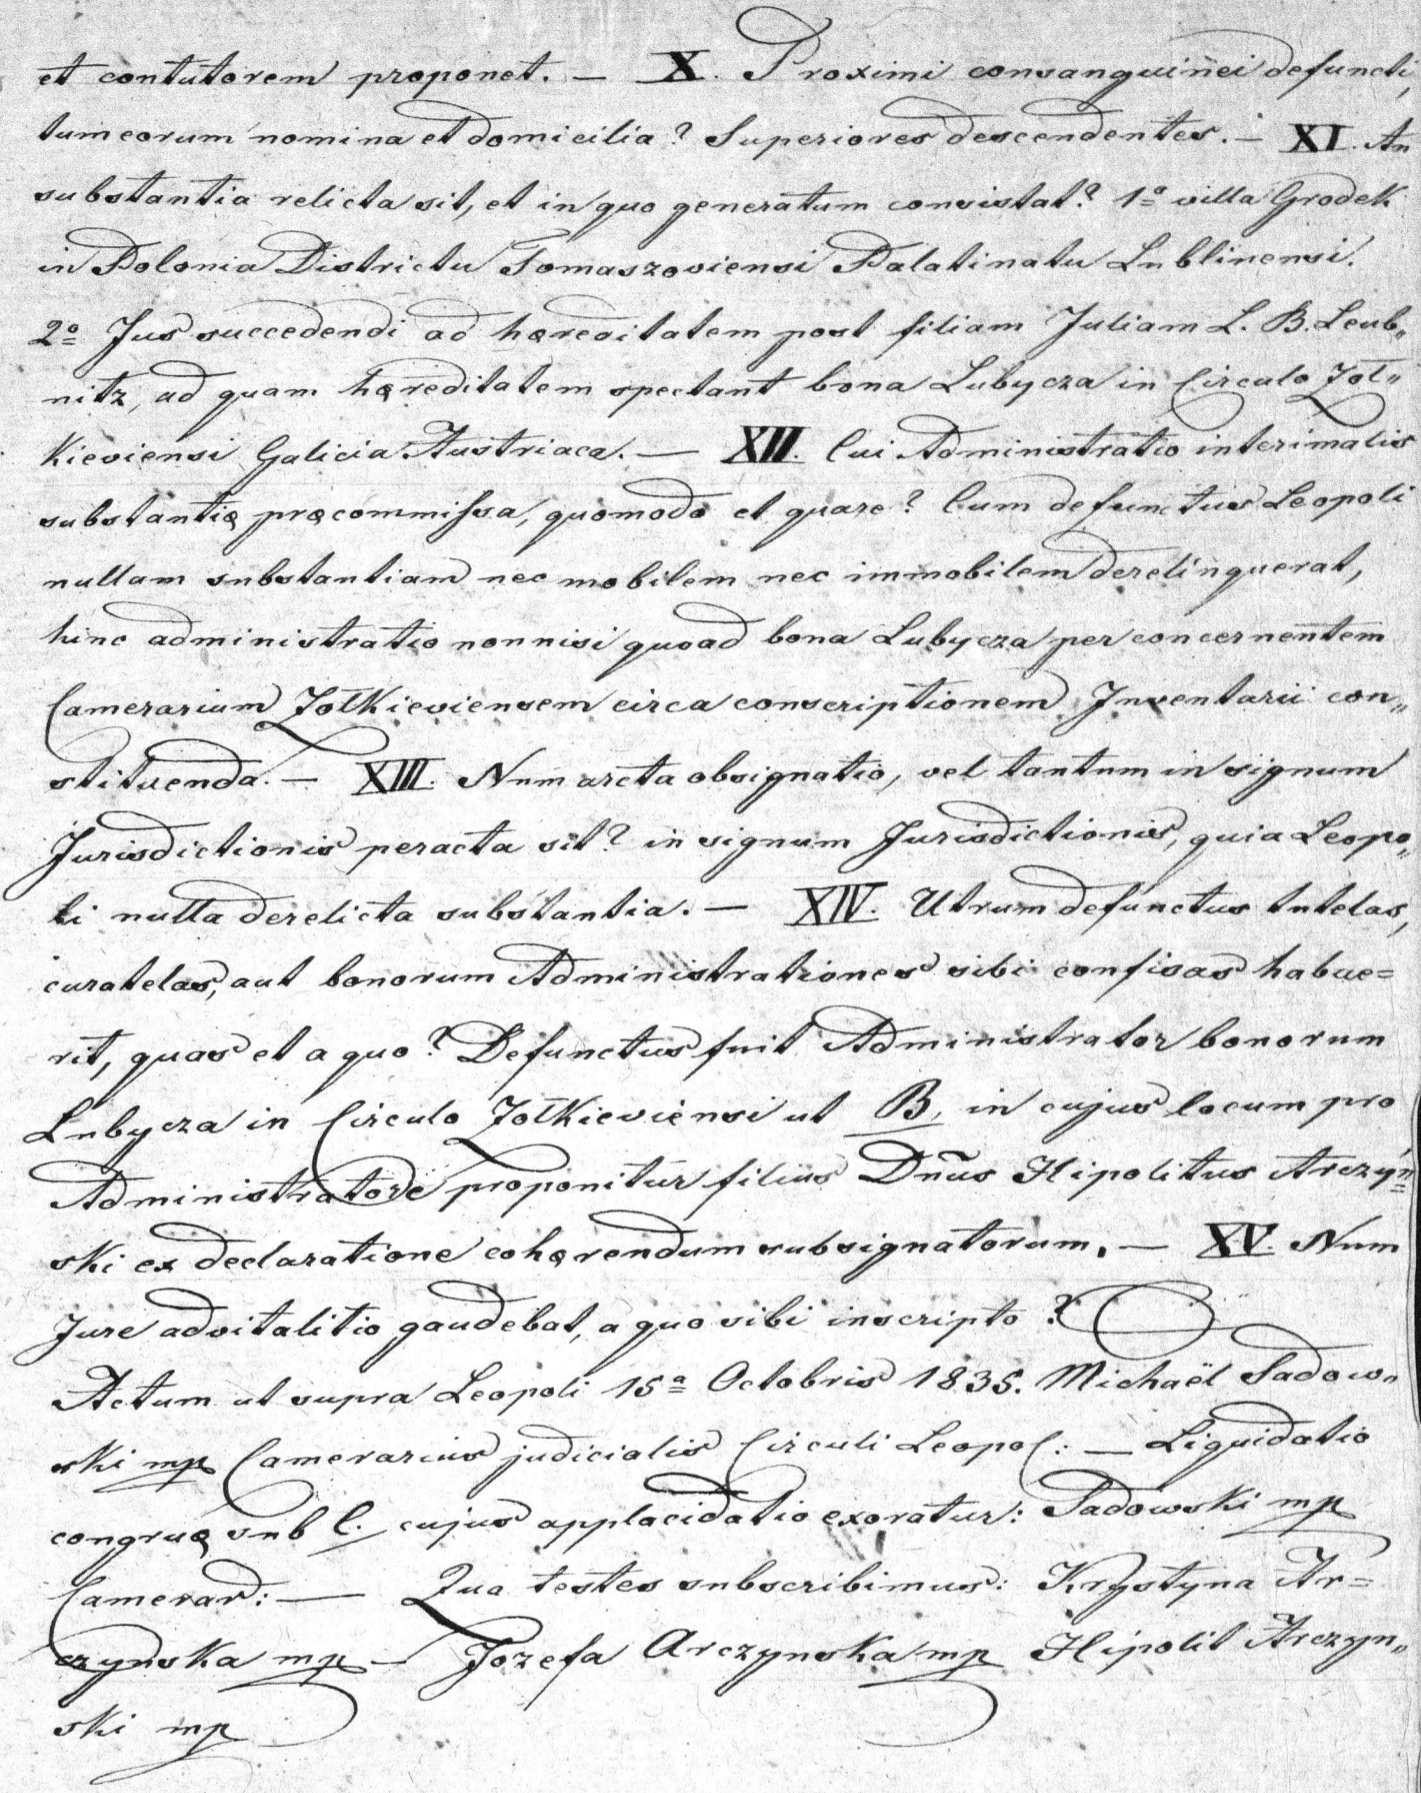 et contutorem proponet. — X. Proximi consanguinei defuncti,
tum eorum nomina et domicilia? Superiores descendentes. — XI. An
substantia relicta sit, et in quo generatum consistat? 1º villa Grodek
in Polonia Districtu Tomaszoviensi Palatinatu Lublinensi.
2º Jus succedendi ad hæreditatem post filiam Juliam L. B. Leub„
nitz, ad quam hæreditatem spectant bona Lubycza in Circulo Zoł„
kieviensi Galicia Austriaca. — XII. Cui Administratio interimalis
substantię pręcommissa, quomodo et quare? Cum defunctus Leopoli
nullam substantiam nec mobilem nec immobilem derelinquerat,
hinc administratio nonnisi quoad bona Lubycza per concernentem
Camerarium Zołkieviensem circa conscriptionem Inventarii con„
stituenda. — XIII. Num arcta obsignatio, vel tantum in signum
Jurisdictionis peracta sit? in signum Jurisdictionis, quia Leopo„
li nulla derelicta substantia. — XIV. Utrum defunctus tutelas,
curatelas, aut bonorum Administrationes sibi confisas habue=
rit, quas et a quo? Defunctus fuit Administrator bonorum
Lubycza in Circulo Zołkieviensi ut B, in cujus locum pro
Administratore proponitur filius Dnus Hipolitus Arczyń=
ski ex declaratione cohęrendum subsignatorum. — XV. Num
Jure advitalitio gaudebat, a quo sibi inscripto?
Actum ut supra Leopoli 15ª Octobris 1835. Michaël Sadow„
ski mp Camerarius judicialis Circuli Leopol: — Liquidatio
congruę sub C. cujus applacidatio exoratur: Sadowski mp
Camerar: — Qua testes subscribimus: Krystyna Ar=
czynska mp — Jozefa Arczynska mp Hipolit Arczyn„
ski mp